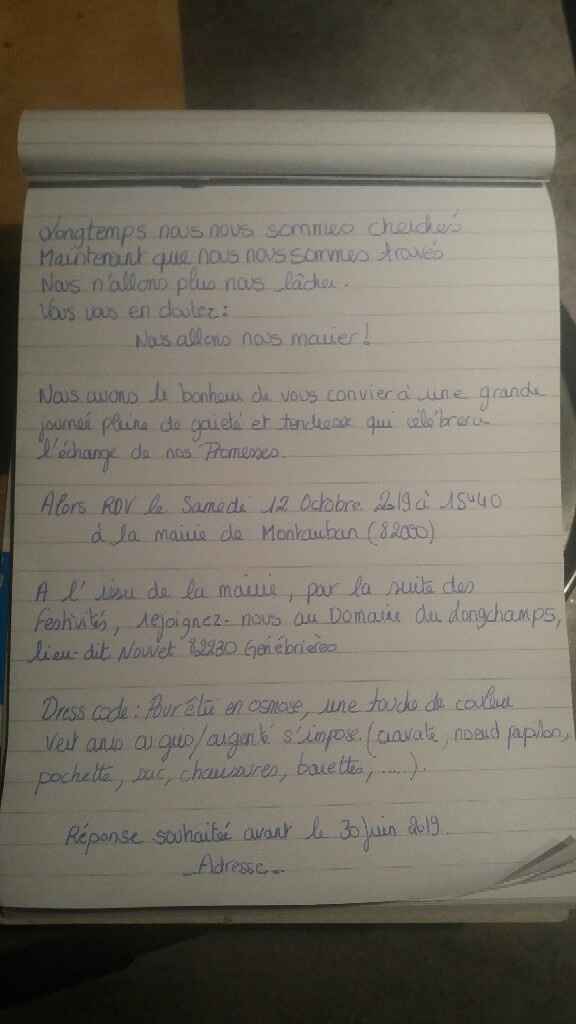 Longtemps nous nous sommes cherchés
Maintenant que nous nous sommes trouvés
Nous n'allons plus nous lâcher.
Vous vous en doutez :
Nous allons nous marier !
Nous avons le bonheur de vous convier à une grande
journeé pleine de gaieté et tendresse qui célébrera
l'échange de nos Promesses.
Alors RDV le Samedi 12 Octobre 2019 à 15h40
à la mairie de Montauban (82000)
A l'issu de la mairie, par la suite des
Festivités, rejoignez-nous au Domaine du Longchamps,
lieu-dit Nouvet 82230 Génébrières
Dress code : Pour être en osmose, une touche de couleur
Vert anis ou gris/argenté s'impose. (cravate, noeud papillon,
pochette, sac, chaussures, barettes, .....).
Réponse souhaitée avant le 30 Juin 2019.
_Adresse_